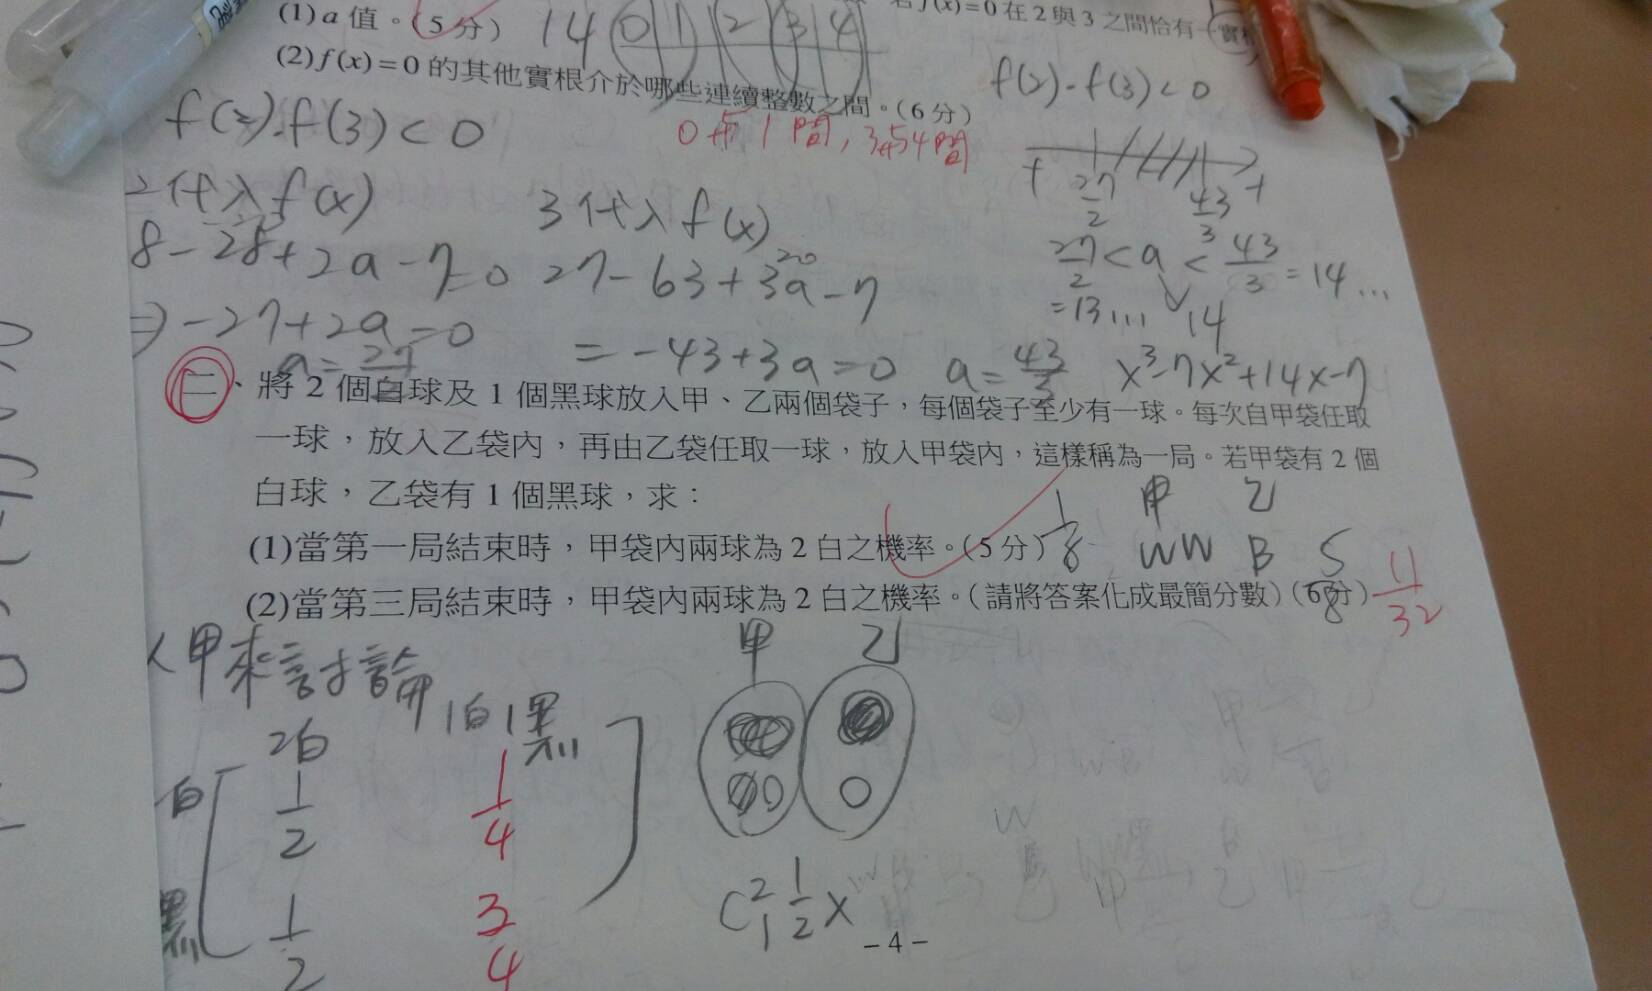 (1) a 值。(5 分) 14 0 1 2 3 4
f(x)=0 在 2 與 3 之間恰有一實根
(2) f(x)=0 的其他實根介於哪些連續整數之間。(6 分)
0與1間, 3與4間
f(2)·f(3)<0
f(2)·f(3)<0
2代入f(x)
3代入f(x)
+ 27/2 43/3 +
8-28+2a-7=0
27-63+3a-7
27/2 < a < 43/3 = 14...
=13... 14
⇒ -27+2a=0
a=27/2
= -43+3a=0 a=43/3
x³-7x²+14x-7
二、將 2 個白球及 1 個黑球放入甲、乙兩個袋子，每個袋子至少有一球。每次自甲袋任取
一球，放入乙袋內，再由乙袋任取一球，放入甲袋內，這樣稱為一局。若甲袋有 2 個
白球，乙袋有 1 個黑球，求：
(1)當第一局結束時，甲袋內兩球為 2 白之機率。(5 分)
1/8 甲 乙
WW B 5/8
(2)當第三局結束時，甲袋內兩球為 2 白之機率。(請將答案化成最簡分數)(6 分)
11/32
甲來討論
甲 乙
2白 1白1黑
白 1/2 1/4
黑 1/2 3/4
C²₁ 1/2 x
-4-